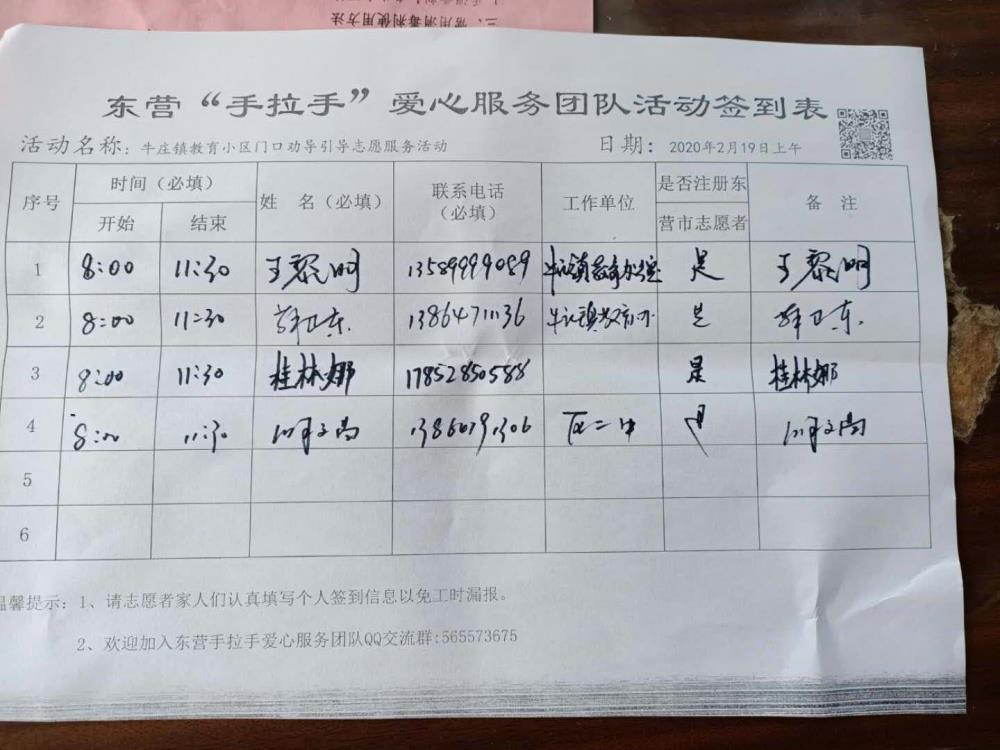 三、常用消毒剂使用方法
东营“手拉手”爱心服务团队活动签到表
活动名称：牛庄镇教育小区门口劝导引导志愿服务活动 日期：2020年2月19日上午
序号 时间（必填） 姓 名（必填） 联系电话（必填） 工作单位 是否注册东营市志愿者 备 注
开始 结束
1 8:00 11:30 王黎明 13589999089 牛庄镇教育办公室 是 王黎明
2 8:00 11:30 薛卫东 13864711136 牛庄镇教育办 是 薛卫东
3 8:00 11:30 桂林娜 17852850588 是 桂林娜
4 8:00 11:30 13860791306 二中 是
5
6
温馨提示：1、请志愿者家人们认真填写个人签到信息以免工时漏报。
2、欢迎加入东营手拉手爱心服务团队QQ交流群:565573675